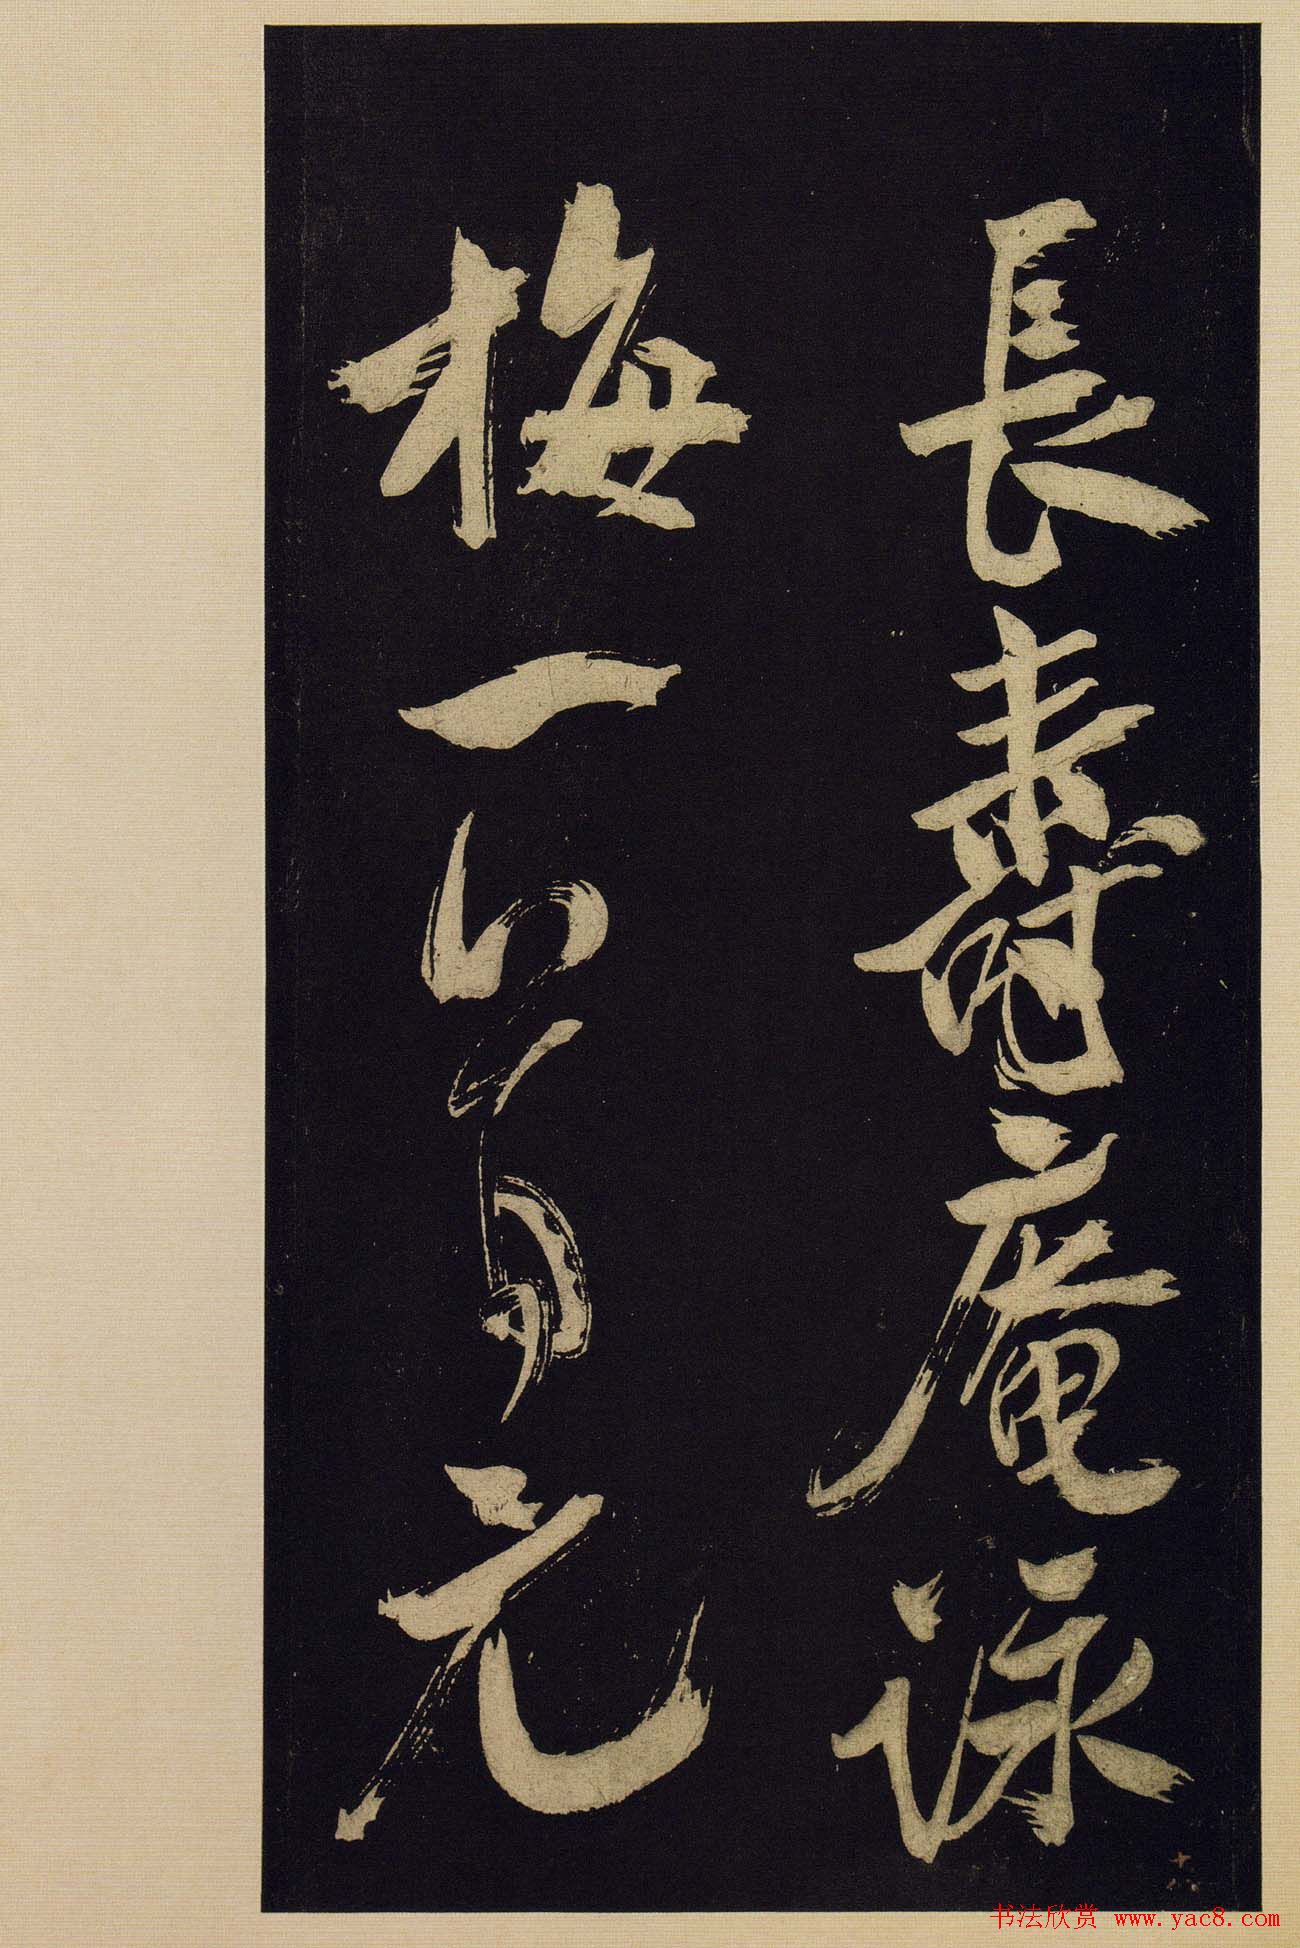 長壽庵詠
梅一首元
书法欣赏 www.yac8.com